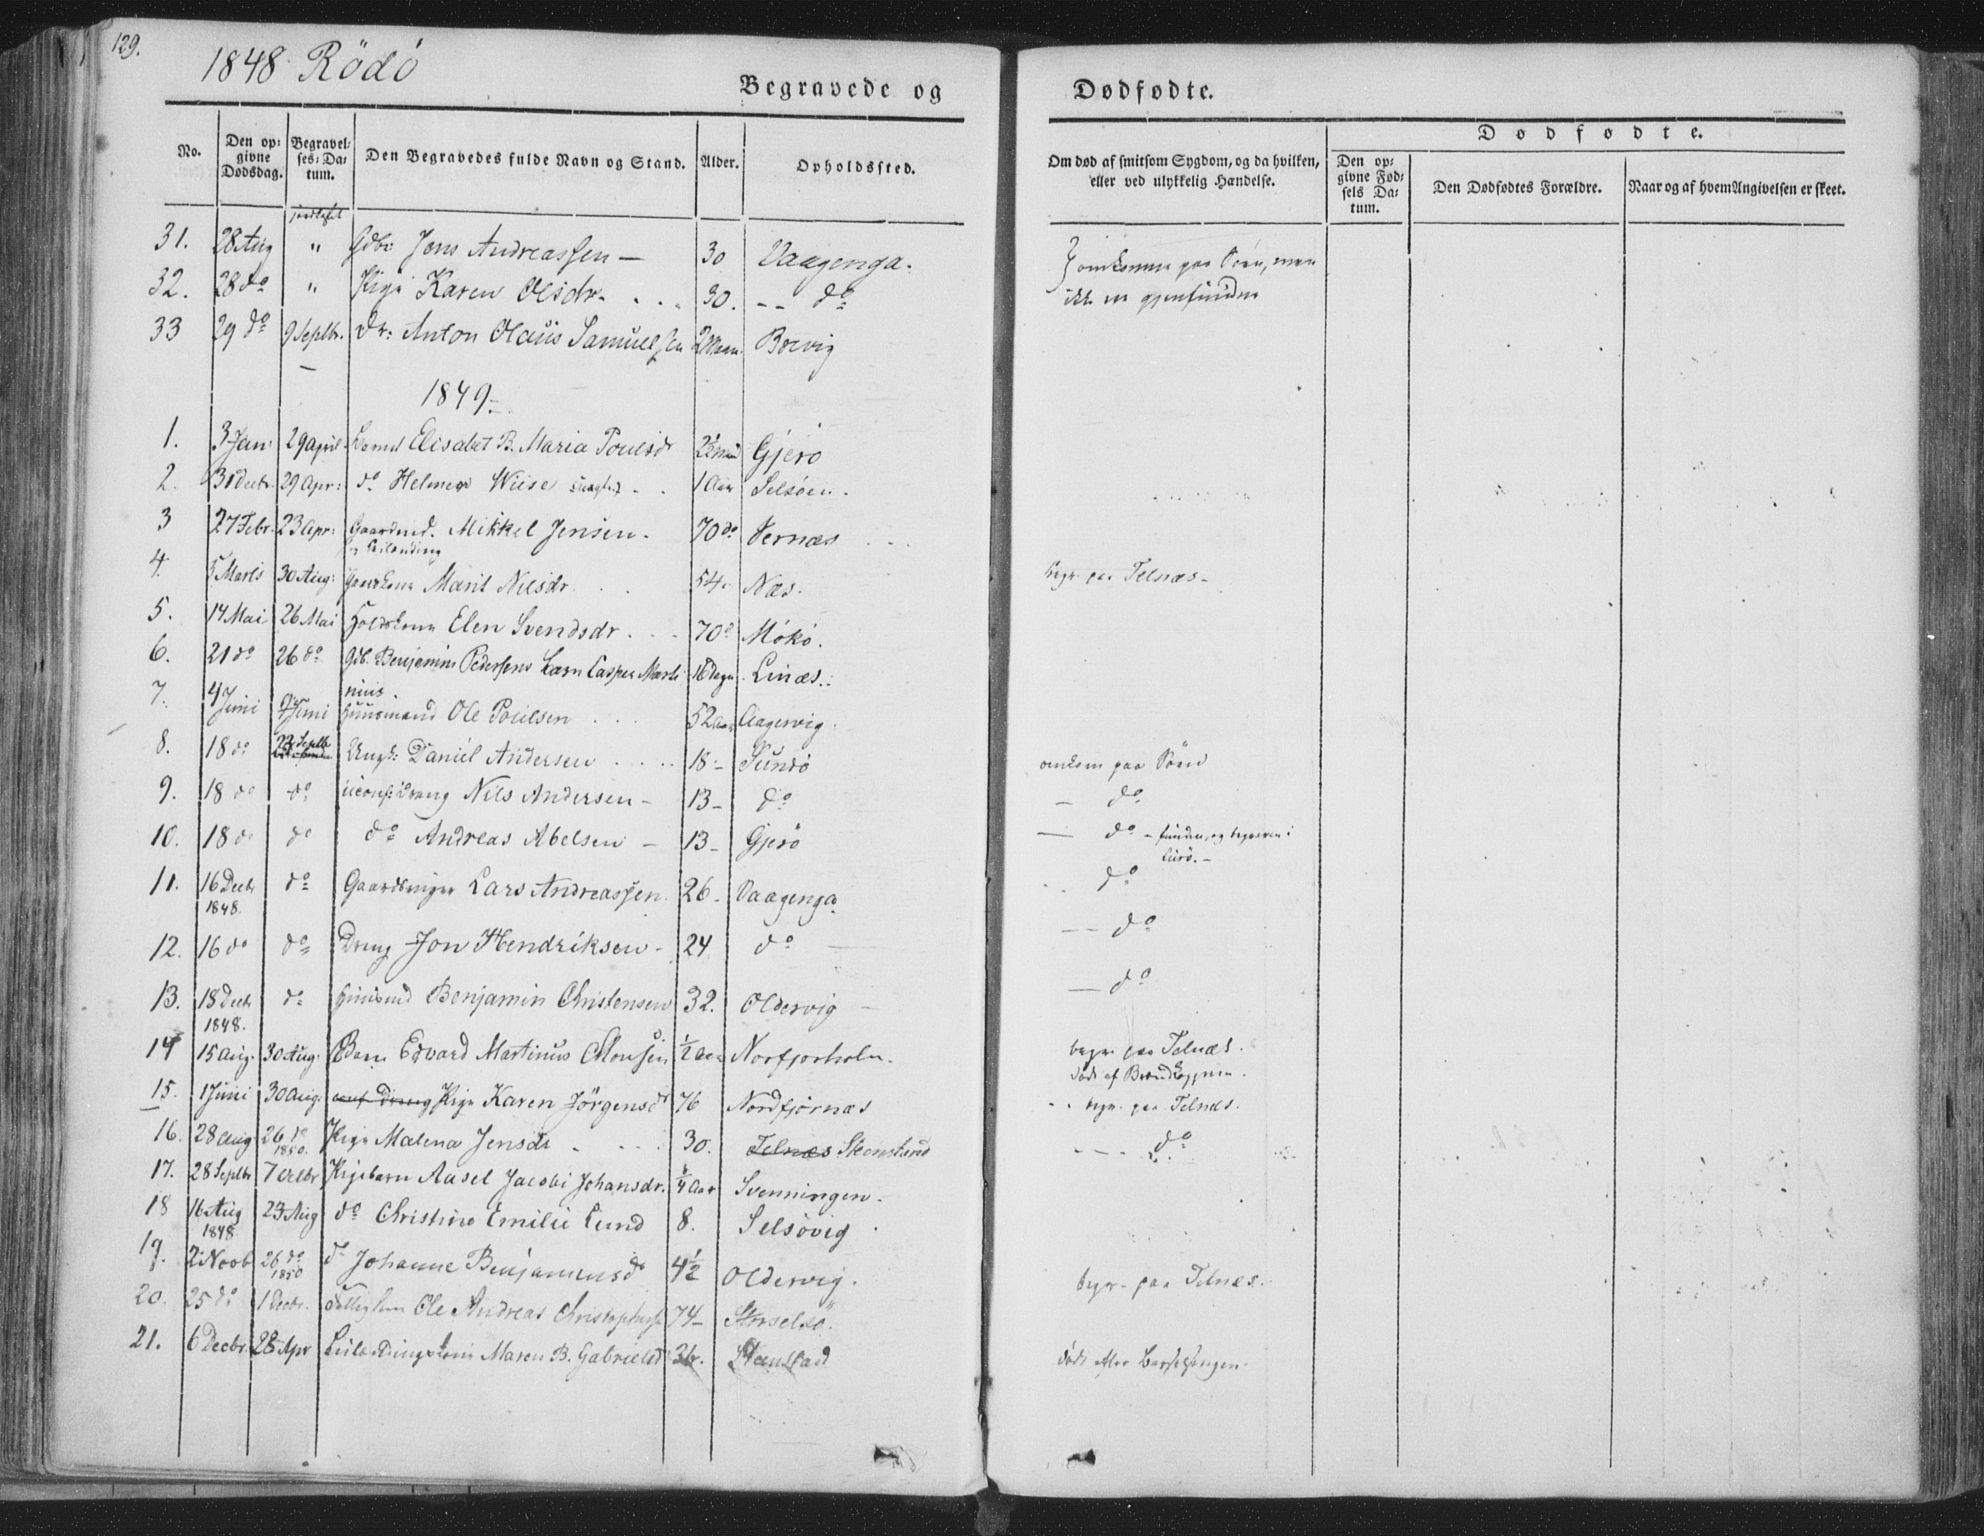 129.
1848 Rödö
Begravede og
Dødfødte.
No.
Den op=
givne
Dødsdag.
Begravel=
ses=Da=
tum.
Den Begravedes fulde Navn og Stand.
Alder.
Opholdssted.
Om død af smitsom Sygdom, og da hvilken,
eller ved ulykkelig Hændelse.
Dødfødte.
Den op=
givne Fød=
sels Da=
tum.
Den Dødfødtes Forældre.
Naar og af hvem Angivelsen er skeet.
31. 28 Aug " Gdbr Jens Andreassen — 30 Vaagenga. omkomne paa Søen, men
32. 28 do " Pige Karen Olsdr. 30. -- do ikke er gjenfundne
33 29 do 9 Septbr. Dr: Anton Olaus Samuelsen Borvig
1849
1. 3 Jan: 29 april Elisabet B. Maria Poulsdr Gjerö
2. 31 Decbr. 29 Apr: do Helmer Wiise 1 Aar Selsöen.
3 27 Febr. 23 Apr: Gaardmd. Mikkel Jensen. 70 do Vernæs
4. 5 Marts 30 Aug: Marit Nilsdr. 54 Næs. begr. paa Telnæs-
5. 14 Mai 26 Mai Elen Svendsdr. 70 Mökö.
6. 21 do 26 do Gdb. Benjamin Pedersens Barn Casper Marti 16 dage Linæs.
nius.
7. 4 Juni Juni Huusmand Ole Poulsen 52 Aar Aagervig.
8. 18 do Septbr Ungk: Daniel Andersen 18- Sundö omkom paa Söen
9. 18 do do uconf: Dreng Nils Andersen - 13- do — do
10. 18 do do do Andreas Abelsen — 13- Gjerö — do - funden, og begraven i
Lurö.-
11. 16 Decbr do Gaardbruger Lars Andreassen 26- Vaagenga do
1848.
12. 16 do do Dreng Jon Hendriksen - 24 do — -- do
13. 18 Decbr do Huusmd Benjamin Christensen 32. Oldervig — — do
1848.
14 15 Aug. 30 Aug: Barn Edvard Martinus Monsen ½ Aar Norfjorholm. begr. paa Telnæs.
døde af
15. 1 Juni 30 Aug. Pige Karen Jörgensdr 76 Nordfjornæs begr. paa Telnæs.
16. 28 Aug 26 do Pige Malena Jensdr 30. Telnæs Stenslund do
1850.
17. 28 Septbr 7 Octbr Pigebarn Aasel Jacobi Johansdr. Aar Svenningen-
18 16 Aug 23 Aug do Christine Emilie Lund 8. Selsövig
1848
19. 2 Novb 26 do do Johanne Benjaminsdr 4½ Oldervig. begr. paa Telnæs.
1850
20. 25 do 1 Decbr. Ole Andreas Christophers 74- Storselsö
21. 6 Decbr 28 Apr Maren B. Gabrielsd 36. Stenstad døde efter Barselsengen.